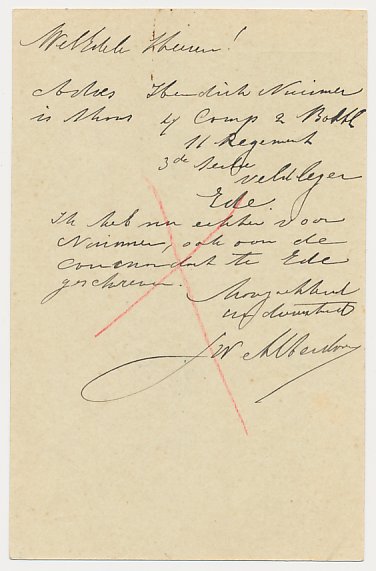 WelEdele Heeren!
Adres Hendrik Nuismer
is thans 4 Comp 2 Batt
11 Regement
3de Sectie
Veldleger
Ede.
Ik heb nu echter voor
Nuismer, ook aan de
Commandant te Ede
geschreven.
Hoogachtend
uw dienstw
JW Alberda